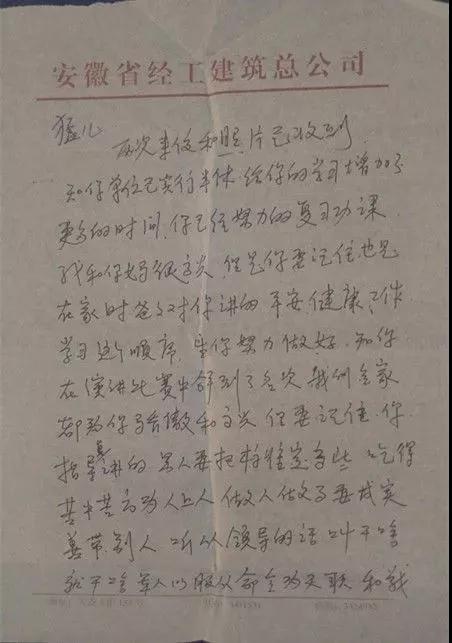 安徽省经工建筑总公司
猛儿
两次来信和照片已收到
知你单位已实行半休 给你的学习增加了
更多的时间，你已经努力的复习功课，
我和你妈很高兴 但是你要记住也是
在家时爸爸对你讲的 平安，健康，工作，
学习这个顺序，望你努力做好，知你
在演讲比赛中拿到了名次 我们全家
都为你骄傲和高兴 但要记住 你
指导员讲的 军人要把标准定高些 吃得
苦中苦方为人上人 做人做事要诚实
善带别人 听从领导的话 叫干啥
就干啥 军人以服从命令为天职 和战